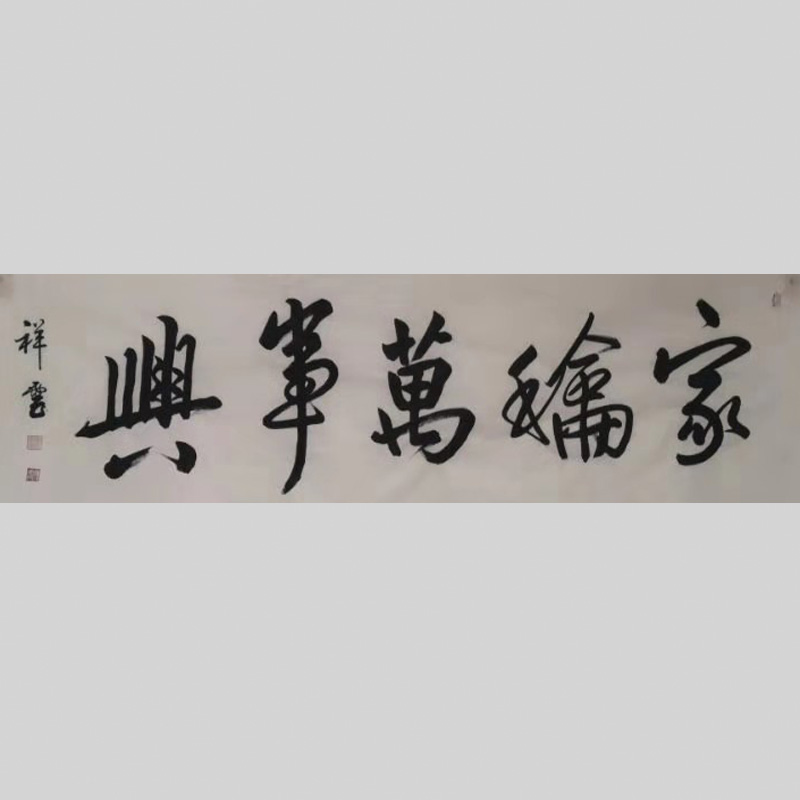 家龢萬事興
祥雲